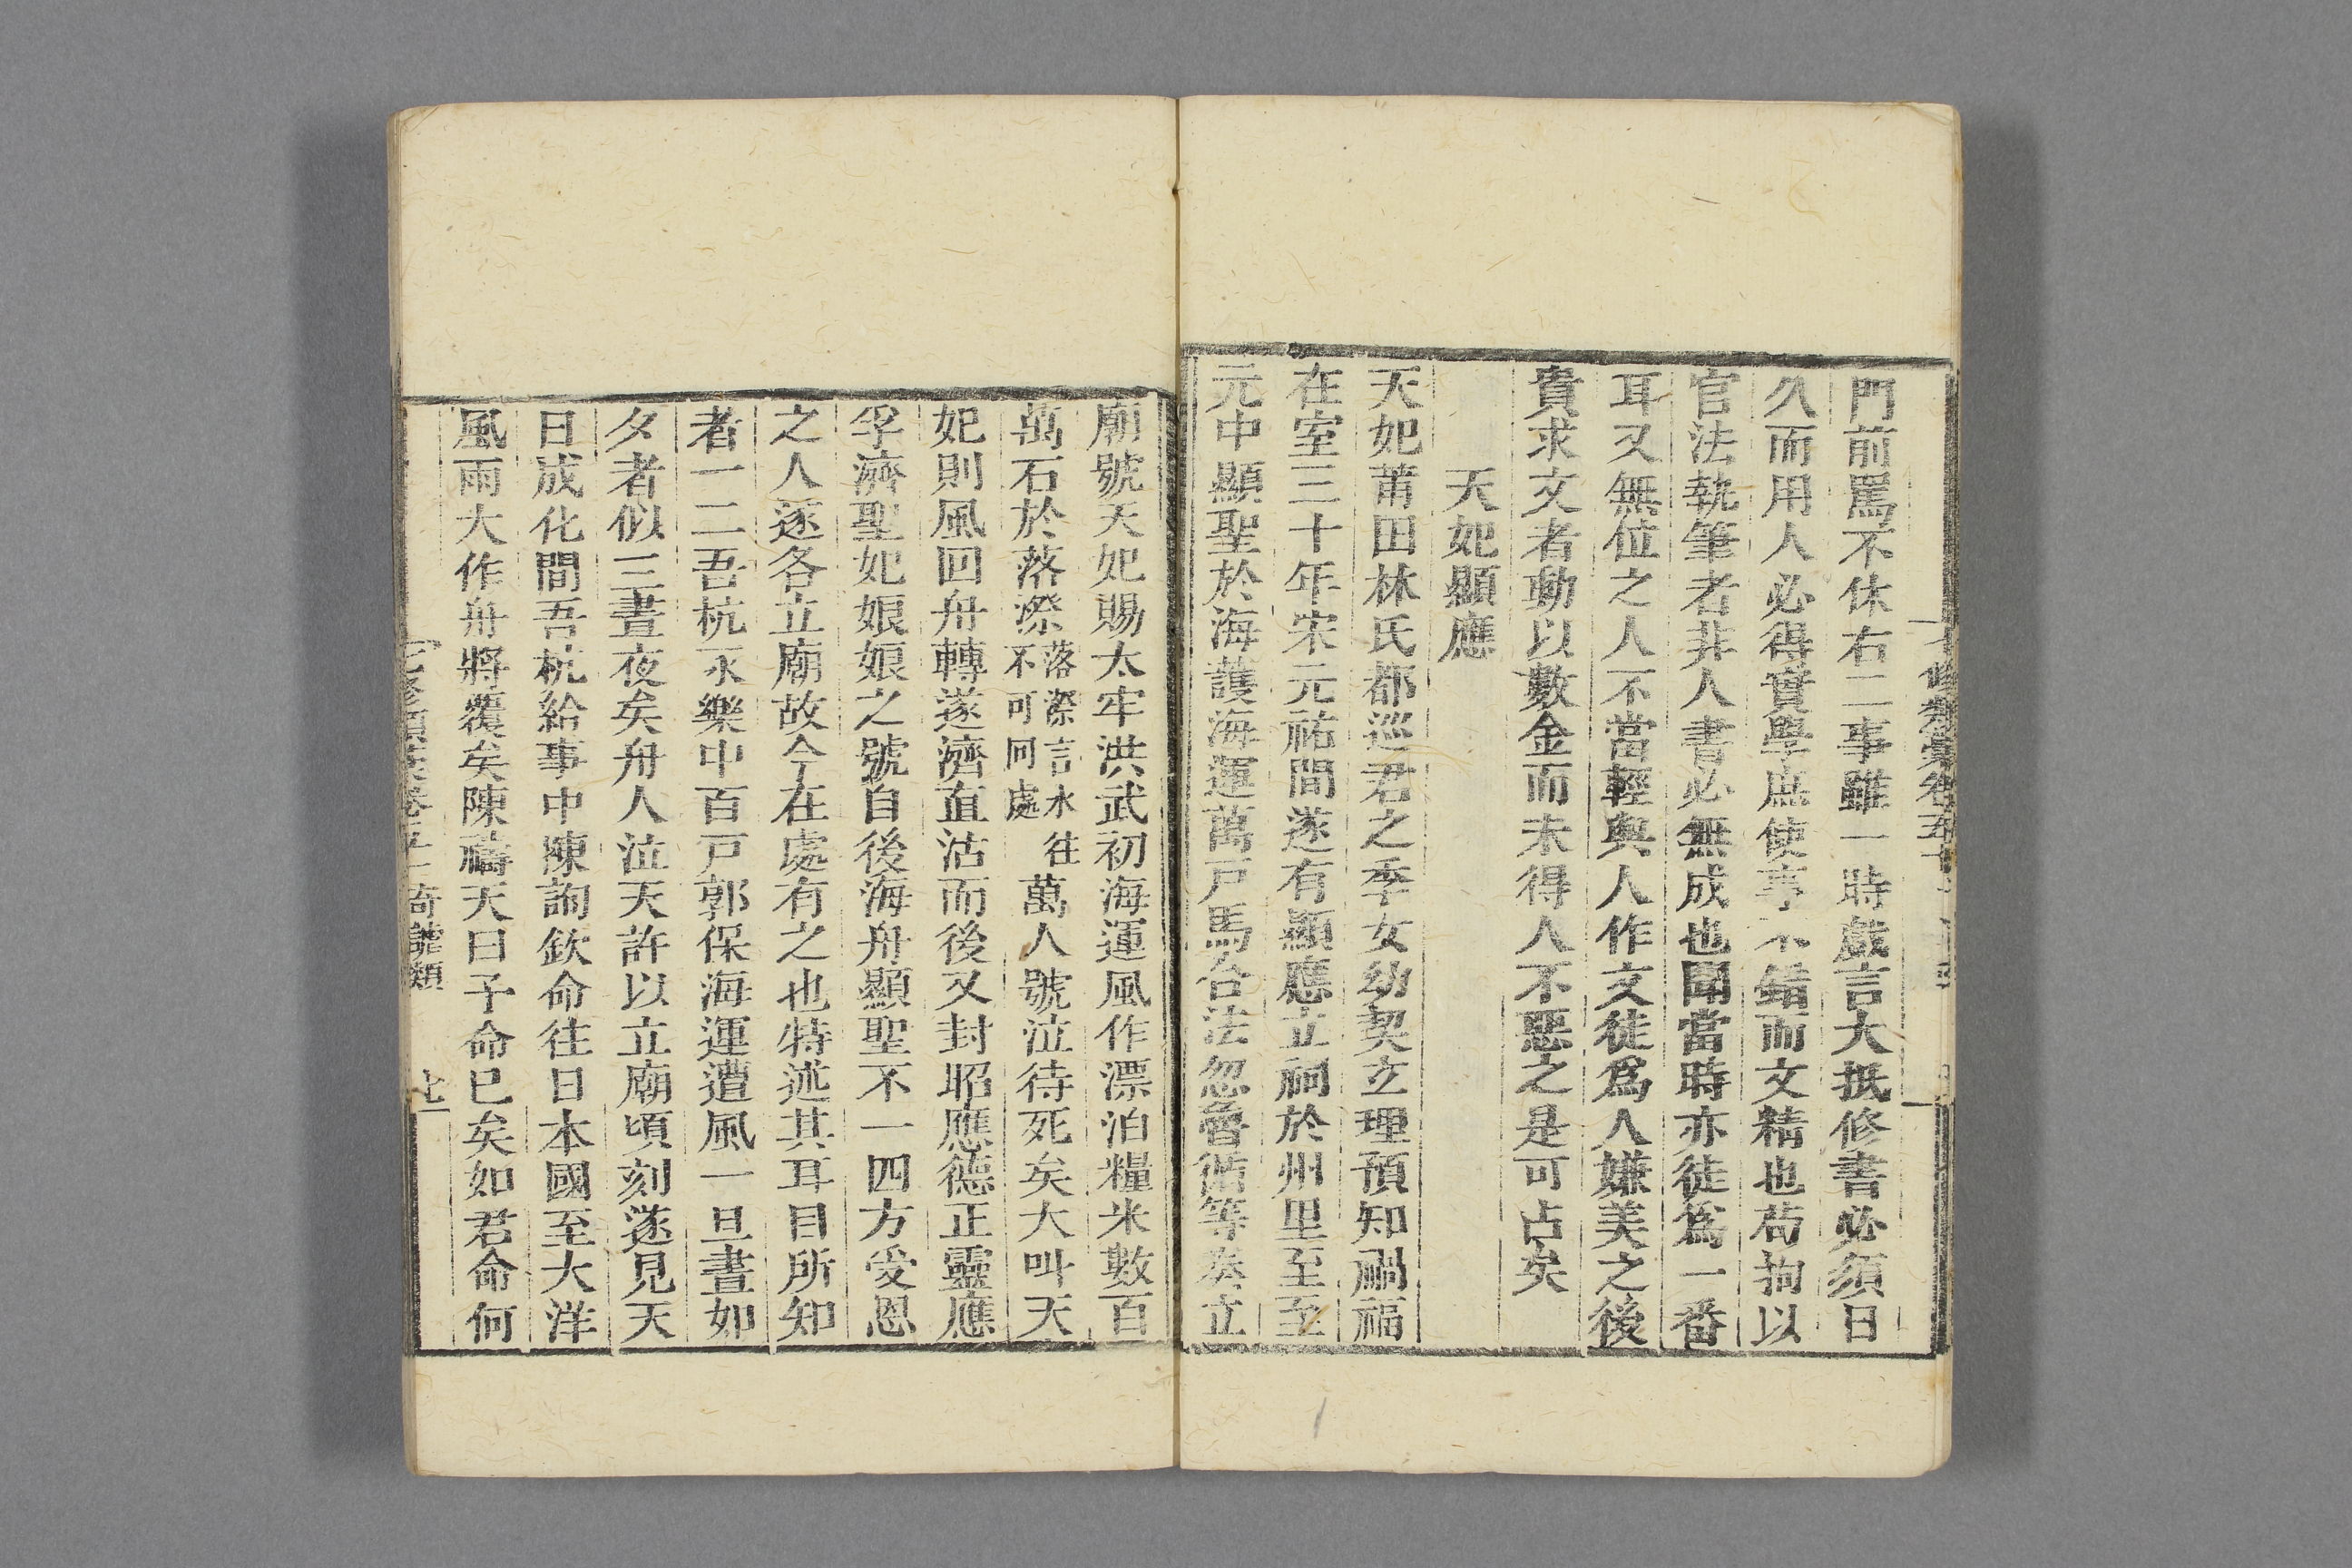 門前罵不休右二事雖一時戲言大抵修書必須日
久而用人必得實學庶使事不錯而文精也苟拘以
官法執筆者非人書必無成也聞當時亦徒爲一番
耳又無位之人不當輕與人作文徒爲人嫌美之後
貴求文者動以數金而未得人不惡之是可占矣
天妃顯應
天妃莆田林氏都巡君之季女幼契玄理預知禍福
在室三十年宋元祐間遂有顯應立祠於州里至至
元中顯聖於海護海運萬戸馬合法忽魯循等奏立
廟號天妃賜太牢洪武初海運風作漂泊糧米數百
萬石於落漈落漈言水往不可回處萬人號泣待死矣大叫天
妃則風回舟轉遂濟直沽而後又封昭應德正靈應
孚濟聖妃娘娘之號自後海舟顯聖不一四方受恩
之人遂各立廟故今在處有之也特述其耳目所知
者一二吾杭永樂中百戸郭保海運遭風一旦晝如
夕者似三晝夜矣舟人泣天許以立廟頃刻遂見天
日成化間吾杭給事中陳詢欽命往日本國至大洋
風雨大作舟將覆矣陳禱天曰予命已矣如君命何
七修類稾卷五十 奇謔類